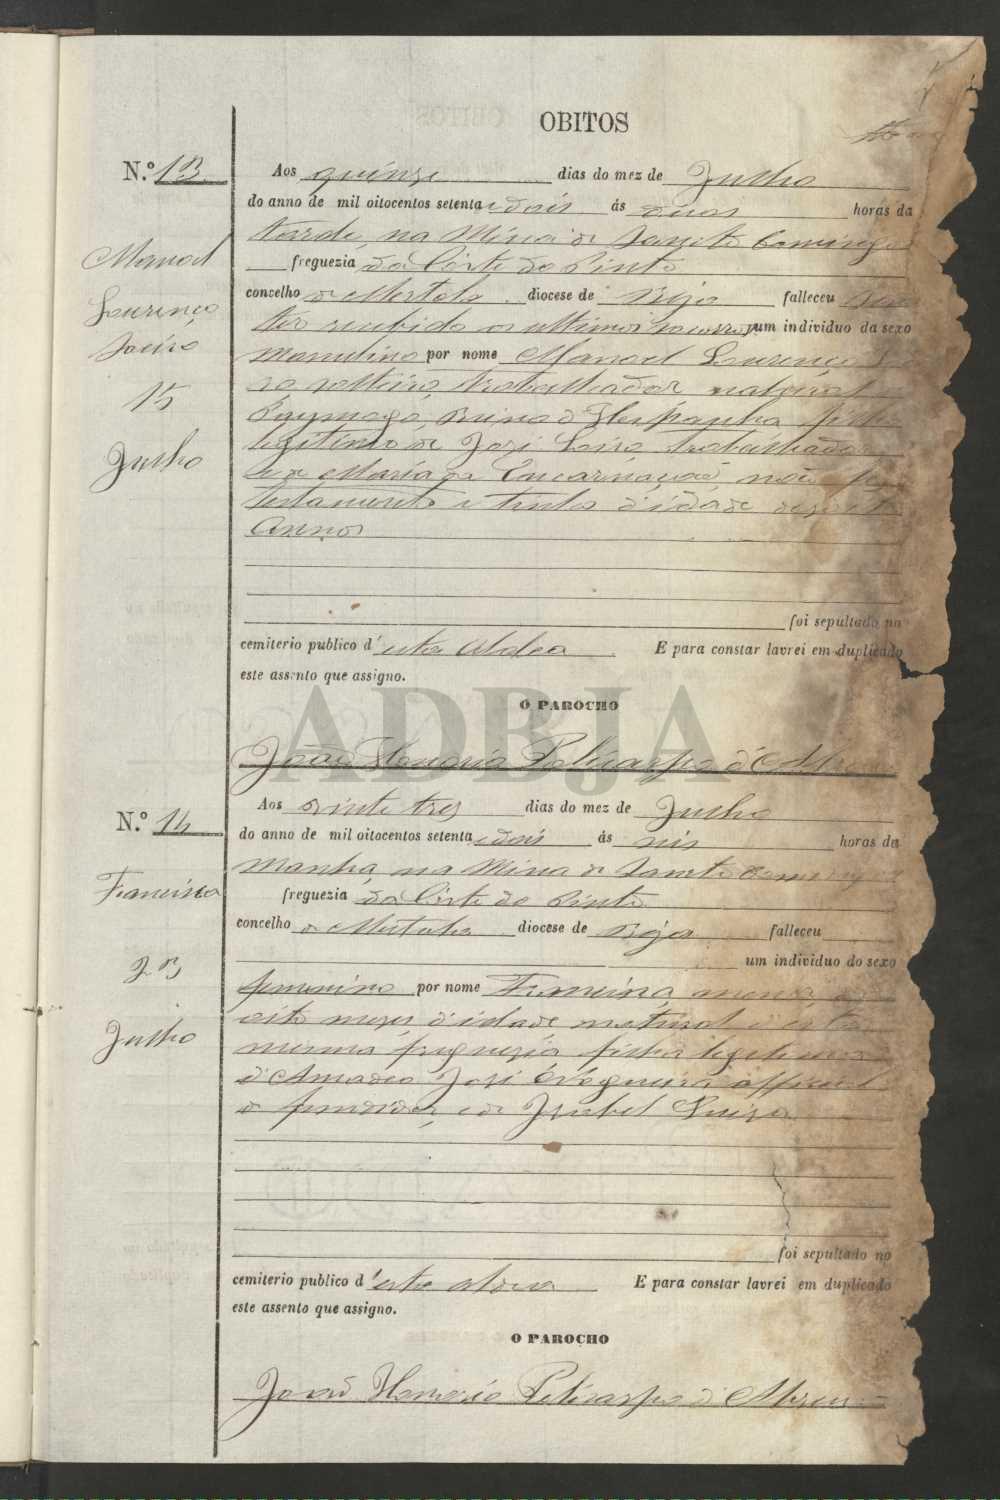 OBITOS
N.º 13
Aos quinze dias do mez de Julho
do anno de mil oitocentos setenta e dois ás duas horas da
tarde, na Mina de Sancto Domingos
freguezia da Côrte do Pinto
concelho de Mertola diocese de Beja falleceu
ter recebido os ultimos soccorros um individuo da sexo
masculino por nome Manoel Lourenço
ro solteiro, trabalhador natural
Paymogo, Reino d'Hespanha, filho
legitimo de José Soeiro, trabalhador
e de Maria da Encarnação, não fez
testamento e tinha d'idade dezoito
annos
Manoel
Lourenço
Soeiro
15
Julho
foi sepultado no
cemiterio publico d'esta Aldea E para constar lavrei em duplicado
este assento que assigno.
O PAROCHO
João Honorio Policarpo d'Abreu
ADBJA
N.º 14
Aos vinte tres dias do mez de Julho
do anno de mil oitocentos setenta e dois ás seis horas da
manhã, na Mina de Sancto Domingos
freguezia da Côrte do Pinto
concelho de Mertola diocese de Beja falleceu
um individuo do sexo
femenino por nome Francisca, menor, de
oito mezes d'idade natural d'esta
mesma freguezia filha legitima
d'Amadeo José Nogueira official
de fundidor, e de Izabel Luiza
Francisca
23
Julho
foi sepultado no
cemiterio publico d'esta aldea E para constar lavrei em duplicado
este assento que assigno.
O PAROCHO
João Honorio Policarpo d'Abreu